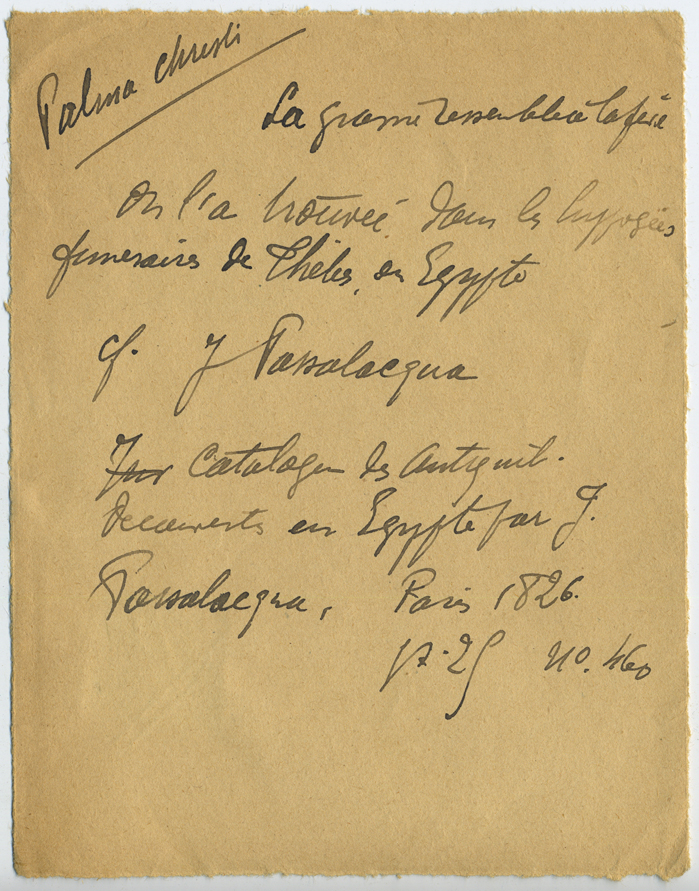 Palma christi
La graine ressemble à la fève
On l'a trouvée dans les hypogées
funeraires de Thèbes, en Egypte
cf. J Passalacqua
Catalogue des Antiquit.
Decouverts en Egypte par J.
Passalacqua, Paris 1826.
p. 25 no. 460